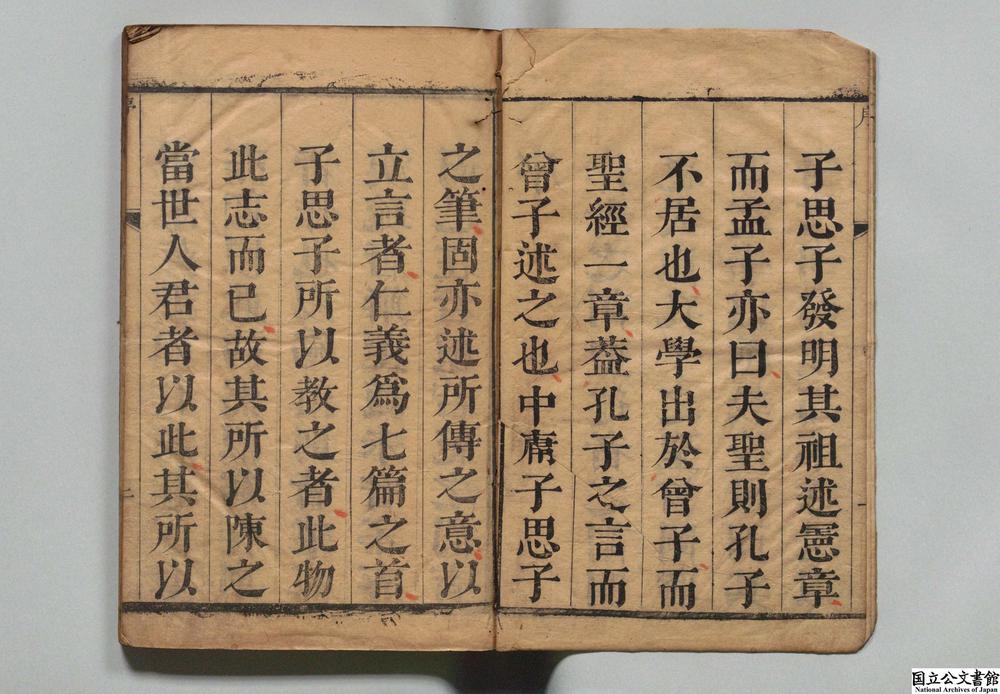 序
子思子發明其祖述憲章
而孟子亦曰夫聖則孔子
不居也大學出於曾子而
聖經一章葢孔子之言而
曾子述之也中庸子思子
之筆固亦述所傳之意以
立言者仁義爲七篇之首
子思子所以教之者此物
此志而已故其所以陳之
當世人君者以此其所以
国立公文書館
National Archives of Japan